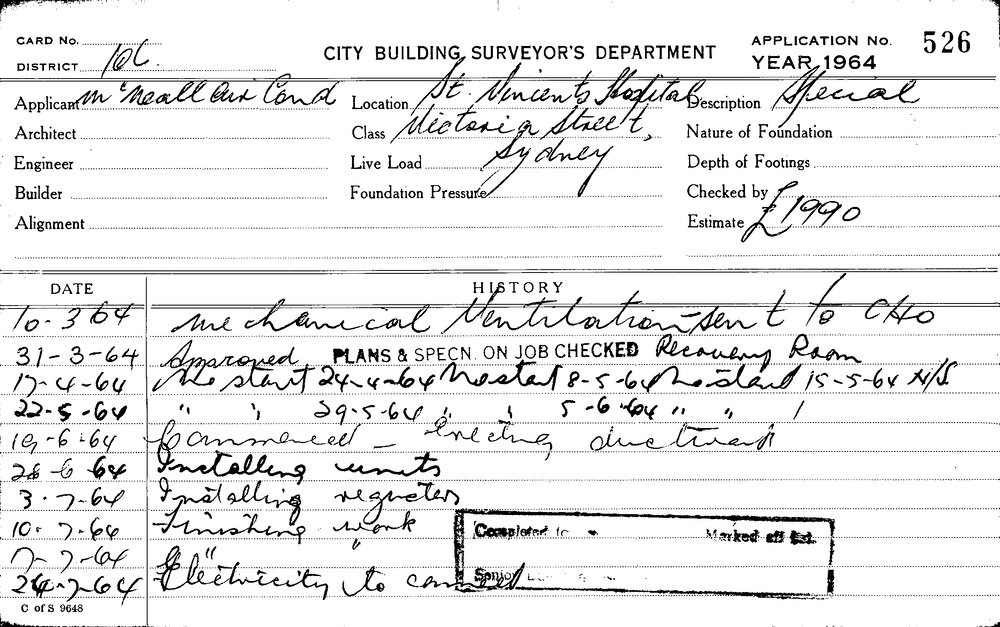 CARD No.
CITY BUILDING SURVEYOR'S DEPARTMENT
APPLICATION No. 526
DISTRICT 10C.
YEAR 1964
Applicant McNeall Air Cond
Location St. Vincents Hospital
Description Special
Architect
Class Victoria Street,
Nature of Foundation
Engineer
Live Load Sydney
Depth of Footings
Builder
Foundation Pressure
Checked by
Alignment
Estimate £1990
DATE HISTORY
10-3 64 Mechanical Ventilation - sent to CHO
31-3-64 Approved PLANS & SPECN. ON JOB CHECKED Recovery Room
17-4-64 No start 24-4-64 No start 8-5-64 No start 15-5-64 N/S
22-5-64 " " 29-5-64 " " 5-6-64 " "
19-6-64 Commenced - Erecting ductwork
28-6-64 Installing units
3-7-64 Installing registers
10-7-64 Finishing work
17-7-64 " "
24-7-64 Electricity to connect
Completed Marked off Est.
Senior
C of S 9648